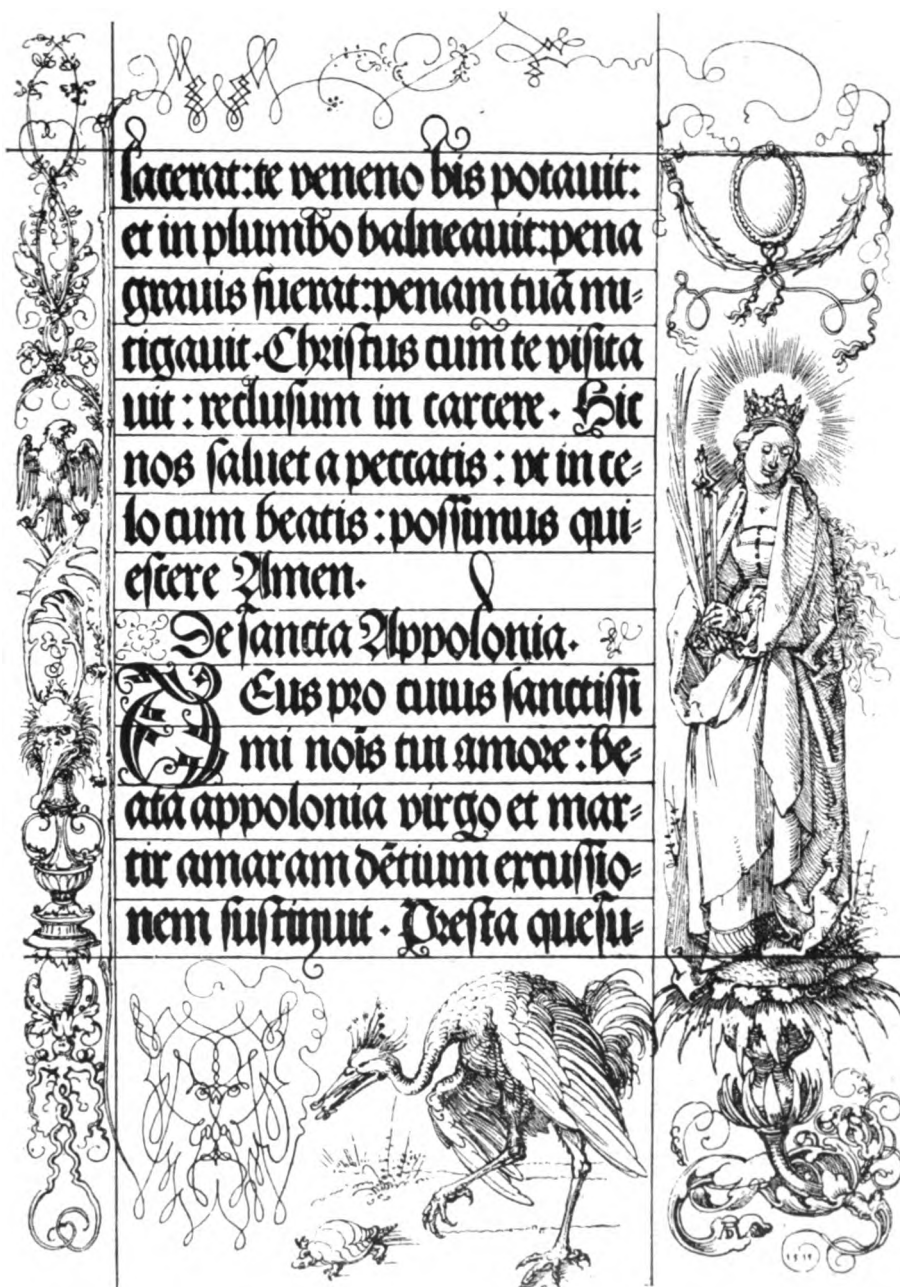 lacerat: te veneno bis potauit:
et in plumbo balneauit: pena
grauis fuerat: penam tuã mi=
tigauit. Christus cum te visita
uit: reclusum in carcere. Hic
nos saluet a peccatis: vt in ce=
lo cum beatis: possimus qui=
escere Amen.
De sancta Appolonia.
DEus pro cuius sanctissi
mi nois̄ tui amore: be=
ata appolonia virgo et mar=
tir amaram dẽtium excussio=
nem sustinuit. Presta quesu=
AD
1515